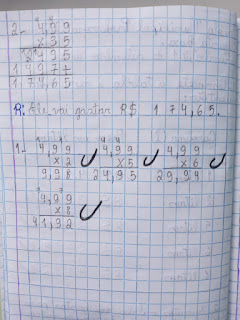 2- 4,99
x35
2495
1497+
174,65
R: Ele vai gastar R$ 174,65.
1- 4,99 4,99 4,99
x2 x5 x6
9,98 24,95 29,94
4,99
x8
41,92